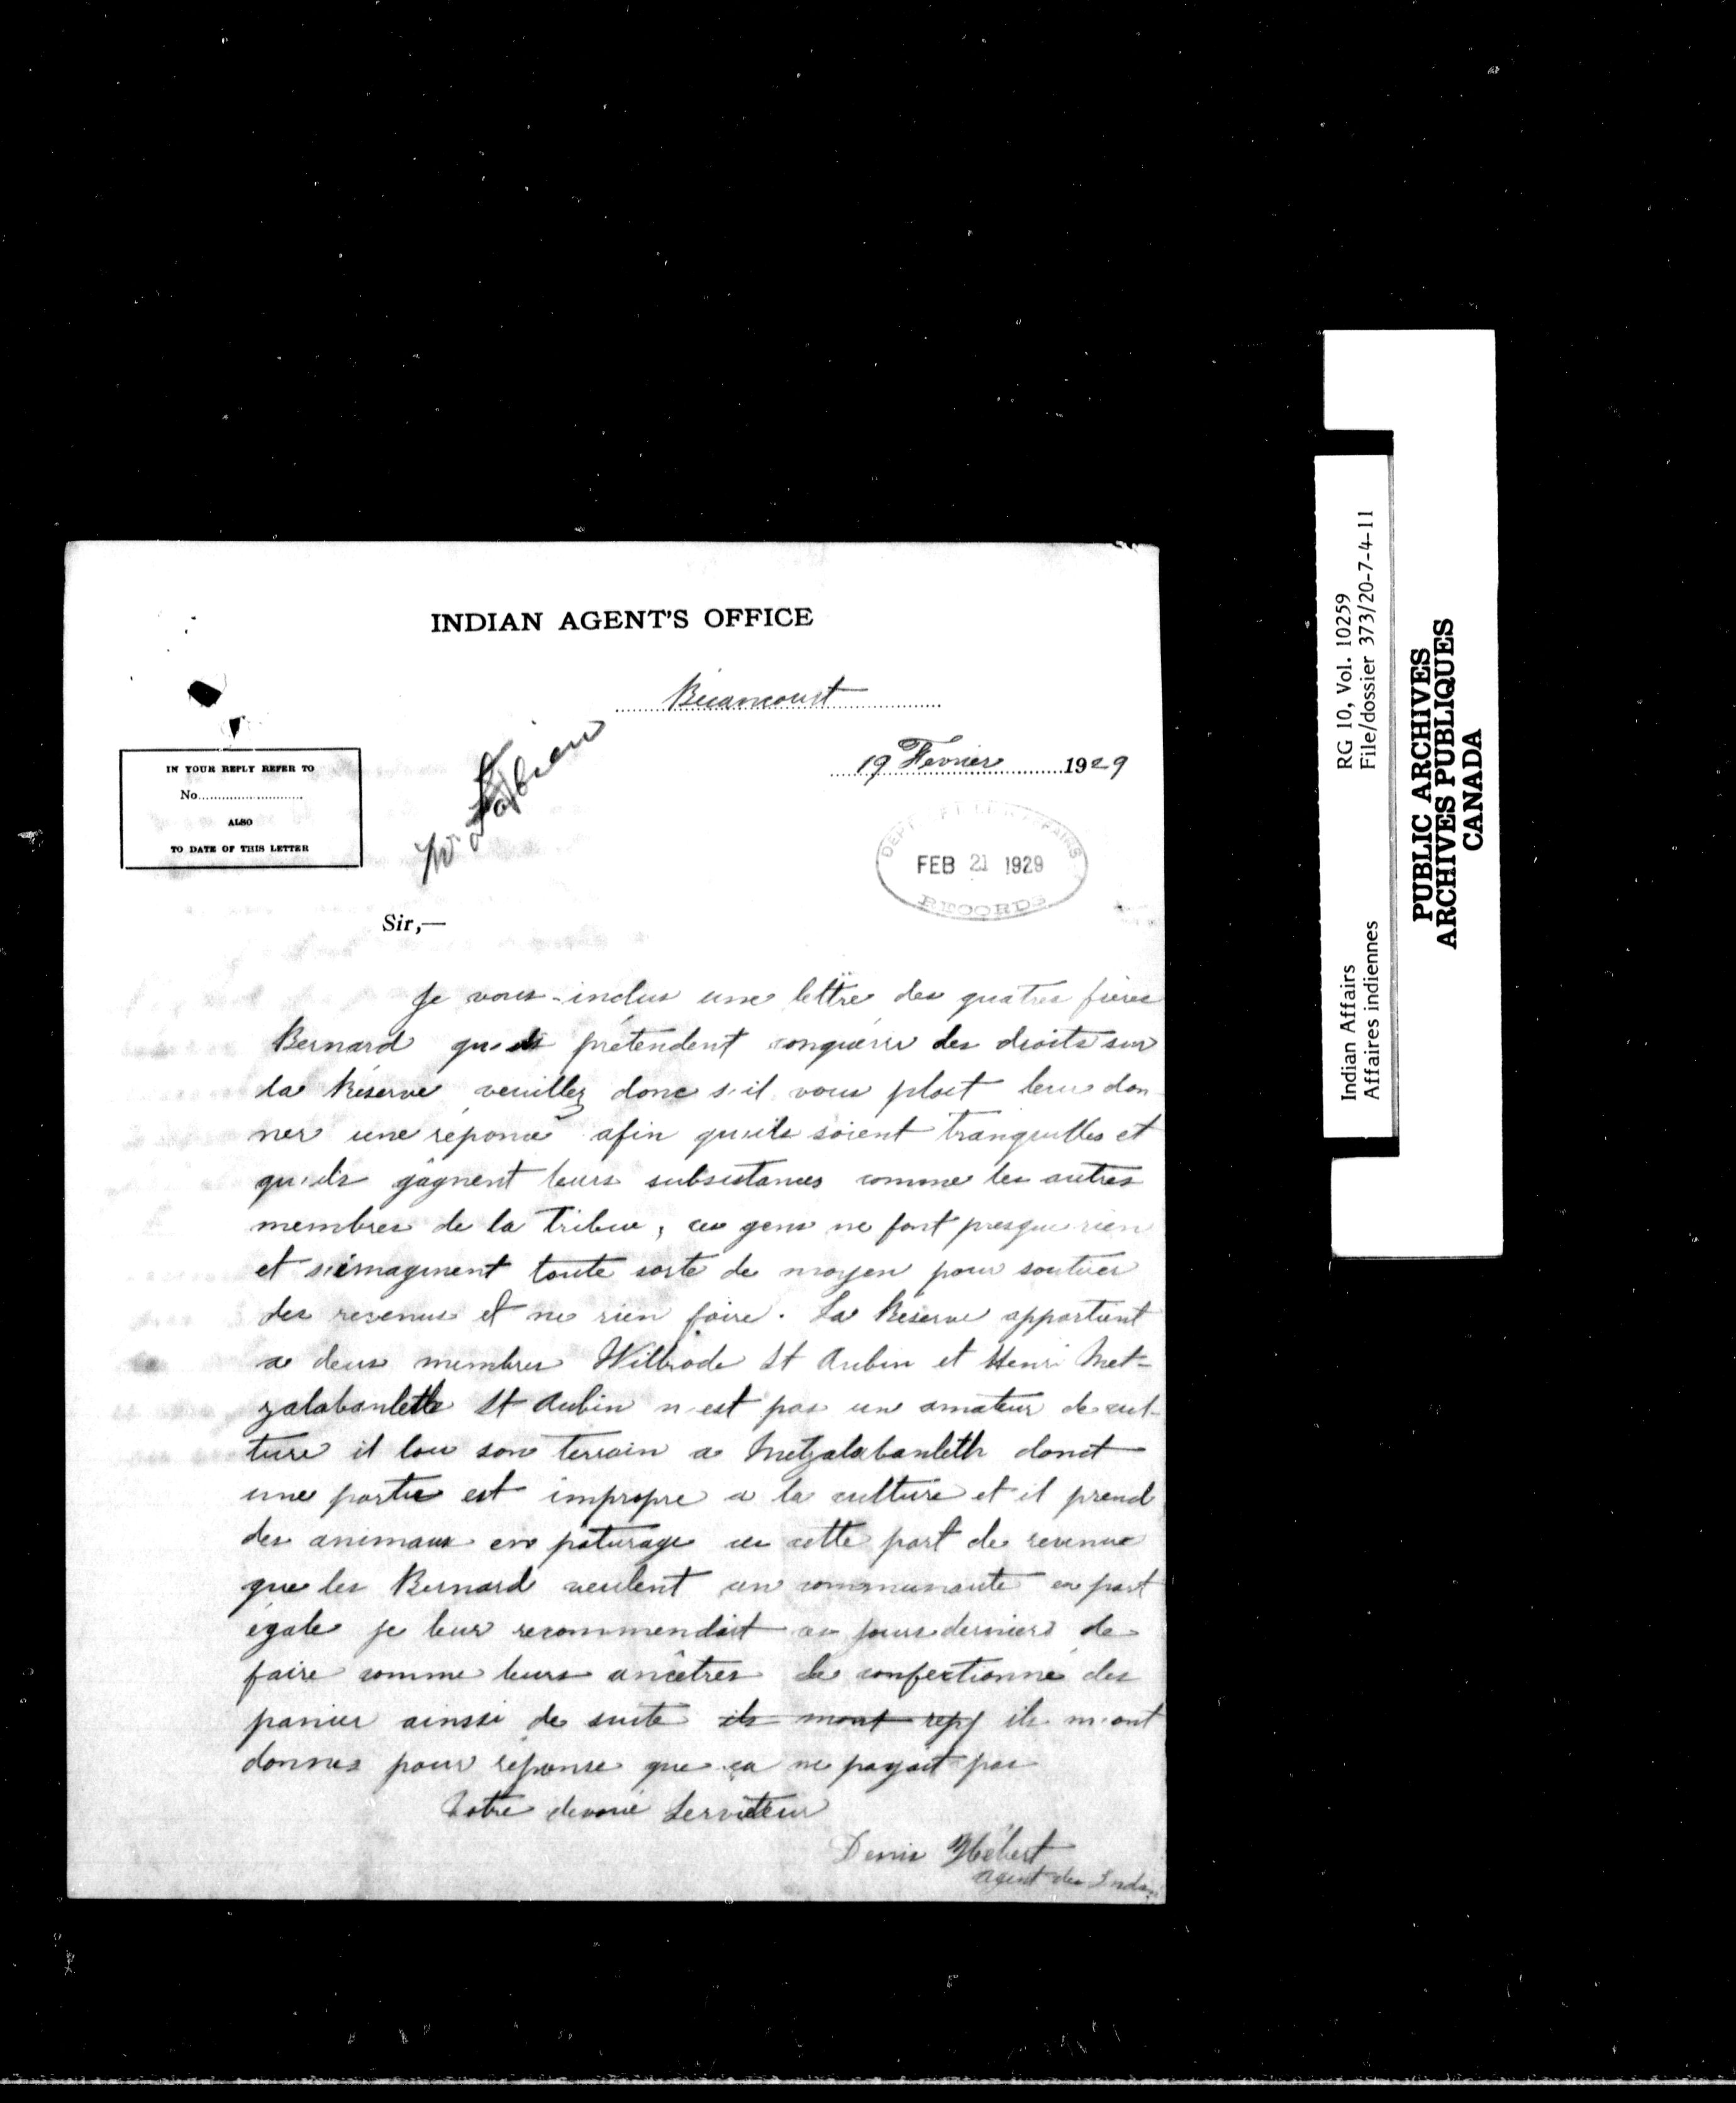 INDIAN AGENT'S OFFICE
Bécancourt
19 Fevrier 1929
IN YOUR REPLY REFER TO
No.
ALSO
TO DATE OF THIS LETTER
DEPT
AFFAIRS
FEB 21 1929
RECORDS
Sir,—
Je vous inclus une lettre des quatres frères
Bernard qu'ils prétendent conquérir des droits sur
la Réserve veuillez donc s'il vous plait leur don
ner une réponce afin qu'ils soient tranquilles et
qu'ils gagnent leurs subsistances comme les autres
membres de la Tribue, ces gens ne font presque rien
et s'imaginent toute sorte de moyen pour soutirer
des revenus et ne rien faire. La Réserve appartient
a deux membres Wilbrode St Aubin et Henri Met-
zalabanlette St Aubin n'est pas un amateur de cul-
ture il lou son terrain a Metzalabanleth donct
une partie est impropre a la culture et il prend
des animaux en paturage cette part de revenue
que les Bernard veulent en communauté en part
égale je leur recommendait ces jours derniers de
faire comme leurs ancêtres de confectionné des
panier ainssi de suite ils mont rep ils m'ont
donnes pour réponse que ca ne payait pas
Votre devoué Serviteur
Denis Hébert
agent des
Indian Affairs RG 10, Vol. 10259
Affaires indiennes File/dossier 373/20-7-4-11
PUBLIC ARCHIVES
ARCHIVES PUBLIQUES
CANADA